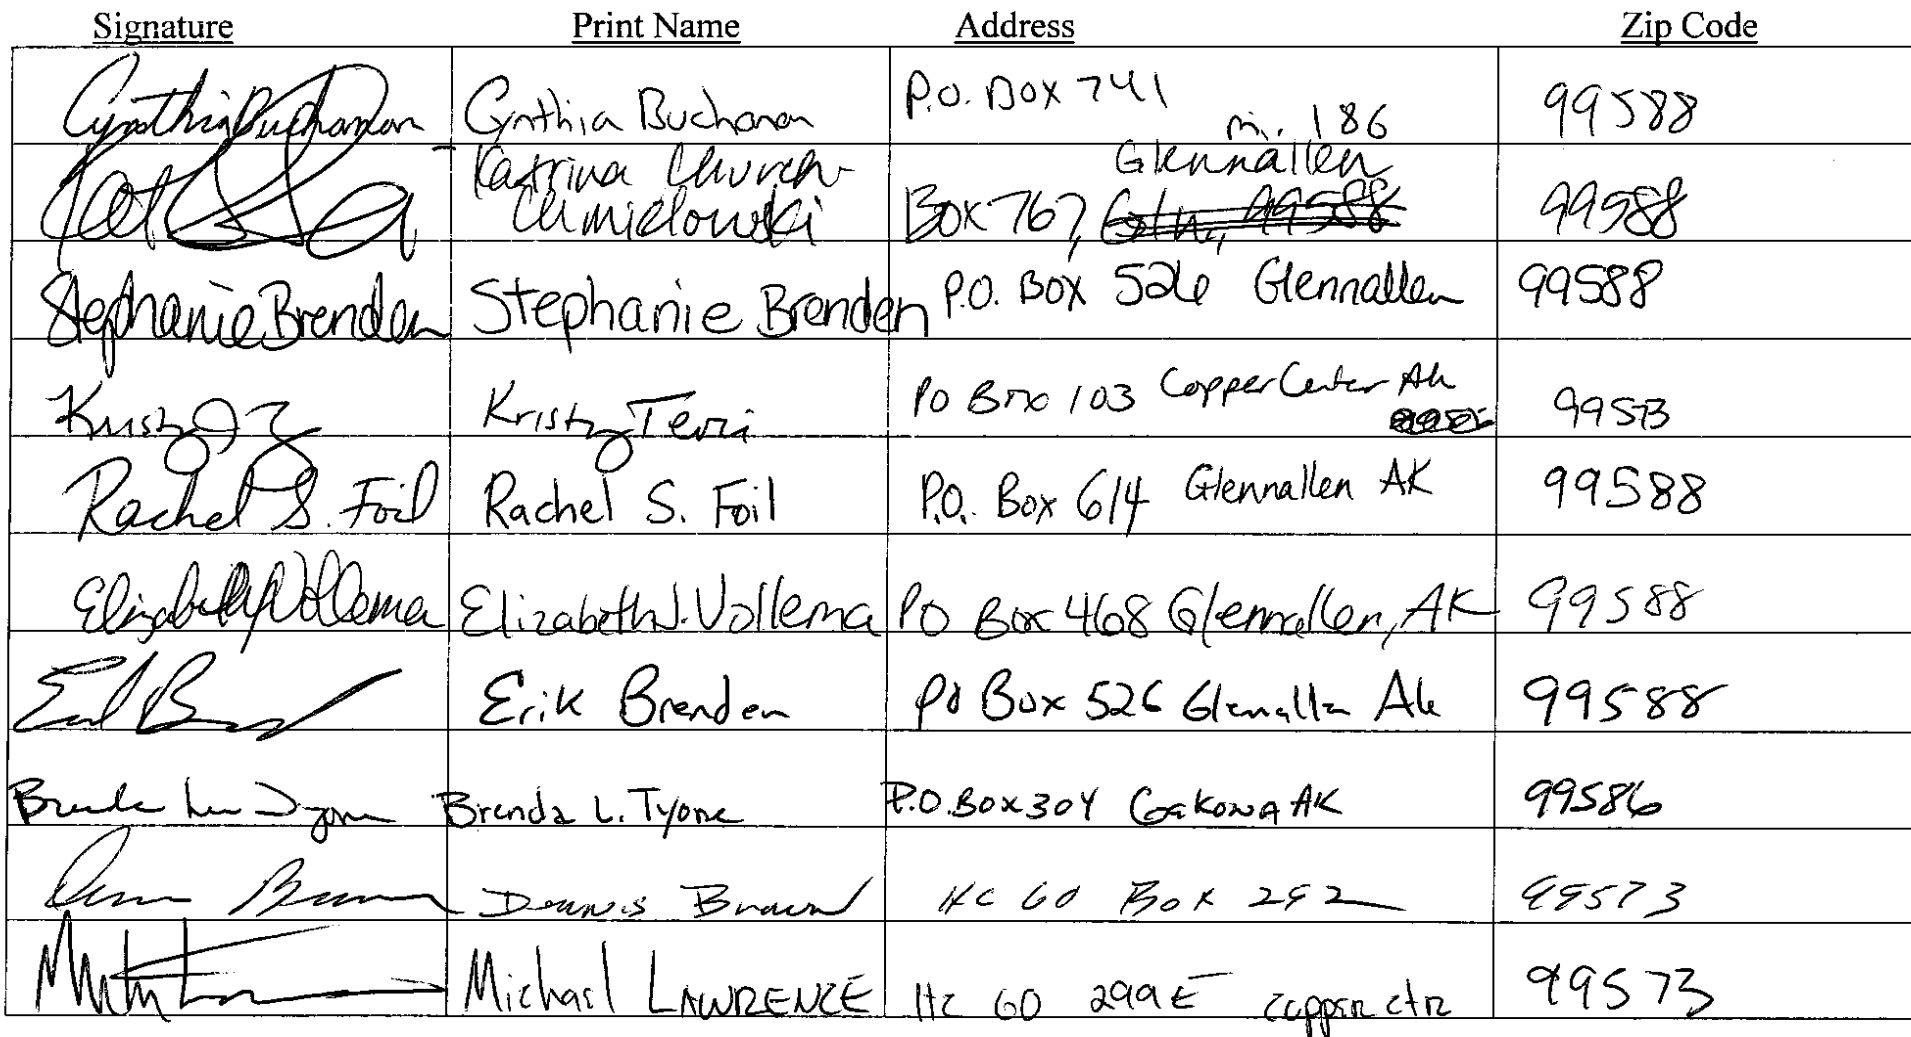 Signature Print Name Address Zip Code
Cynthia Buchanan Cynthia Buchanan P.O. Box 741 99588
m. 186
Katrina Church- Glennallen
Chmielowski Box 767, Gln, 99588 99588
Stephanie Brenden Stephanie Brenden P.O. Box 526 Glennallen 99588
Kristy Kristy P O Box 103 Copper Center Ak 99573
Rachel S. Foil Rachel S. Foil P.O. Box 614 Glennallen AK 99588
Elizabeth J Vollema Elizabeth J. Vollema PO Box 468 Glennallen, AK 99588
Erik Brenden PO Box 526 Glennallen Ak 99588
Brenda Lee Tyone Brenda L. Tyone P.O. Box 304 Gakona AK 99586
Dennis Brown HC 60 Box 292 99573
Michael LAWRENCE HC 60 299E Copper ctr 99573